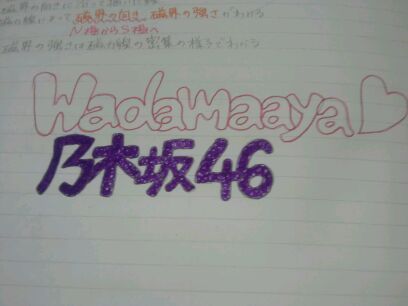 磁界の向きに沿って描いた線
磁力線によって磁界の向き、磁界の強さがわかる
N極からS極へ
磁界の強さは磁力線の密集の様子でわかる
Wadamaaya♡
乃木坂46